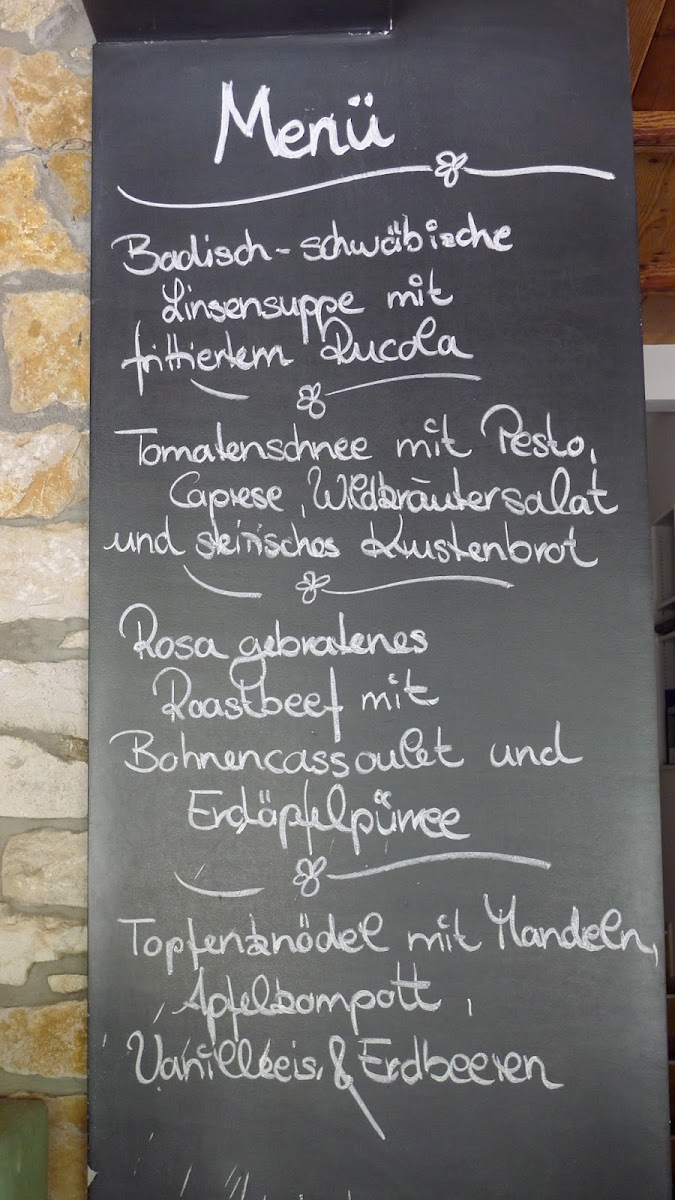 Menü
Badisch-schwäbische
Linsensuppe mit
frittiertem Rucola
Tomatenschnee mit Pesto,
Caprese, Wildkräutersalat
und steirisches Krustenbrot
Rosa gebratenes
Roastbeef mit
Bohnencassoulet und
Erdäpfelpürree
Topfenknödel mit Mandeln,
Apfelkompott,
Vanilleeis, & Erdbeeren